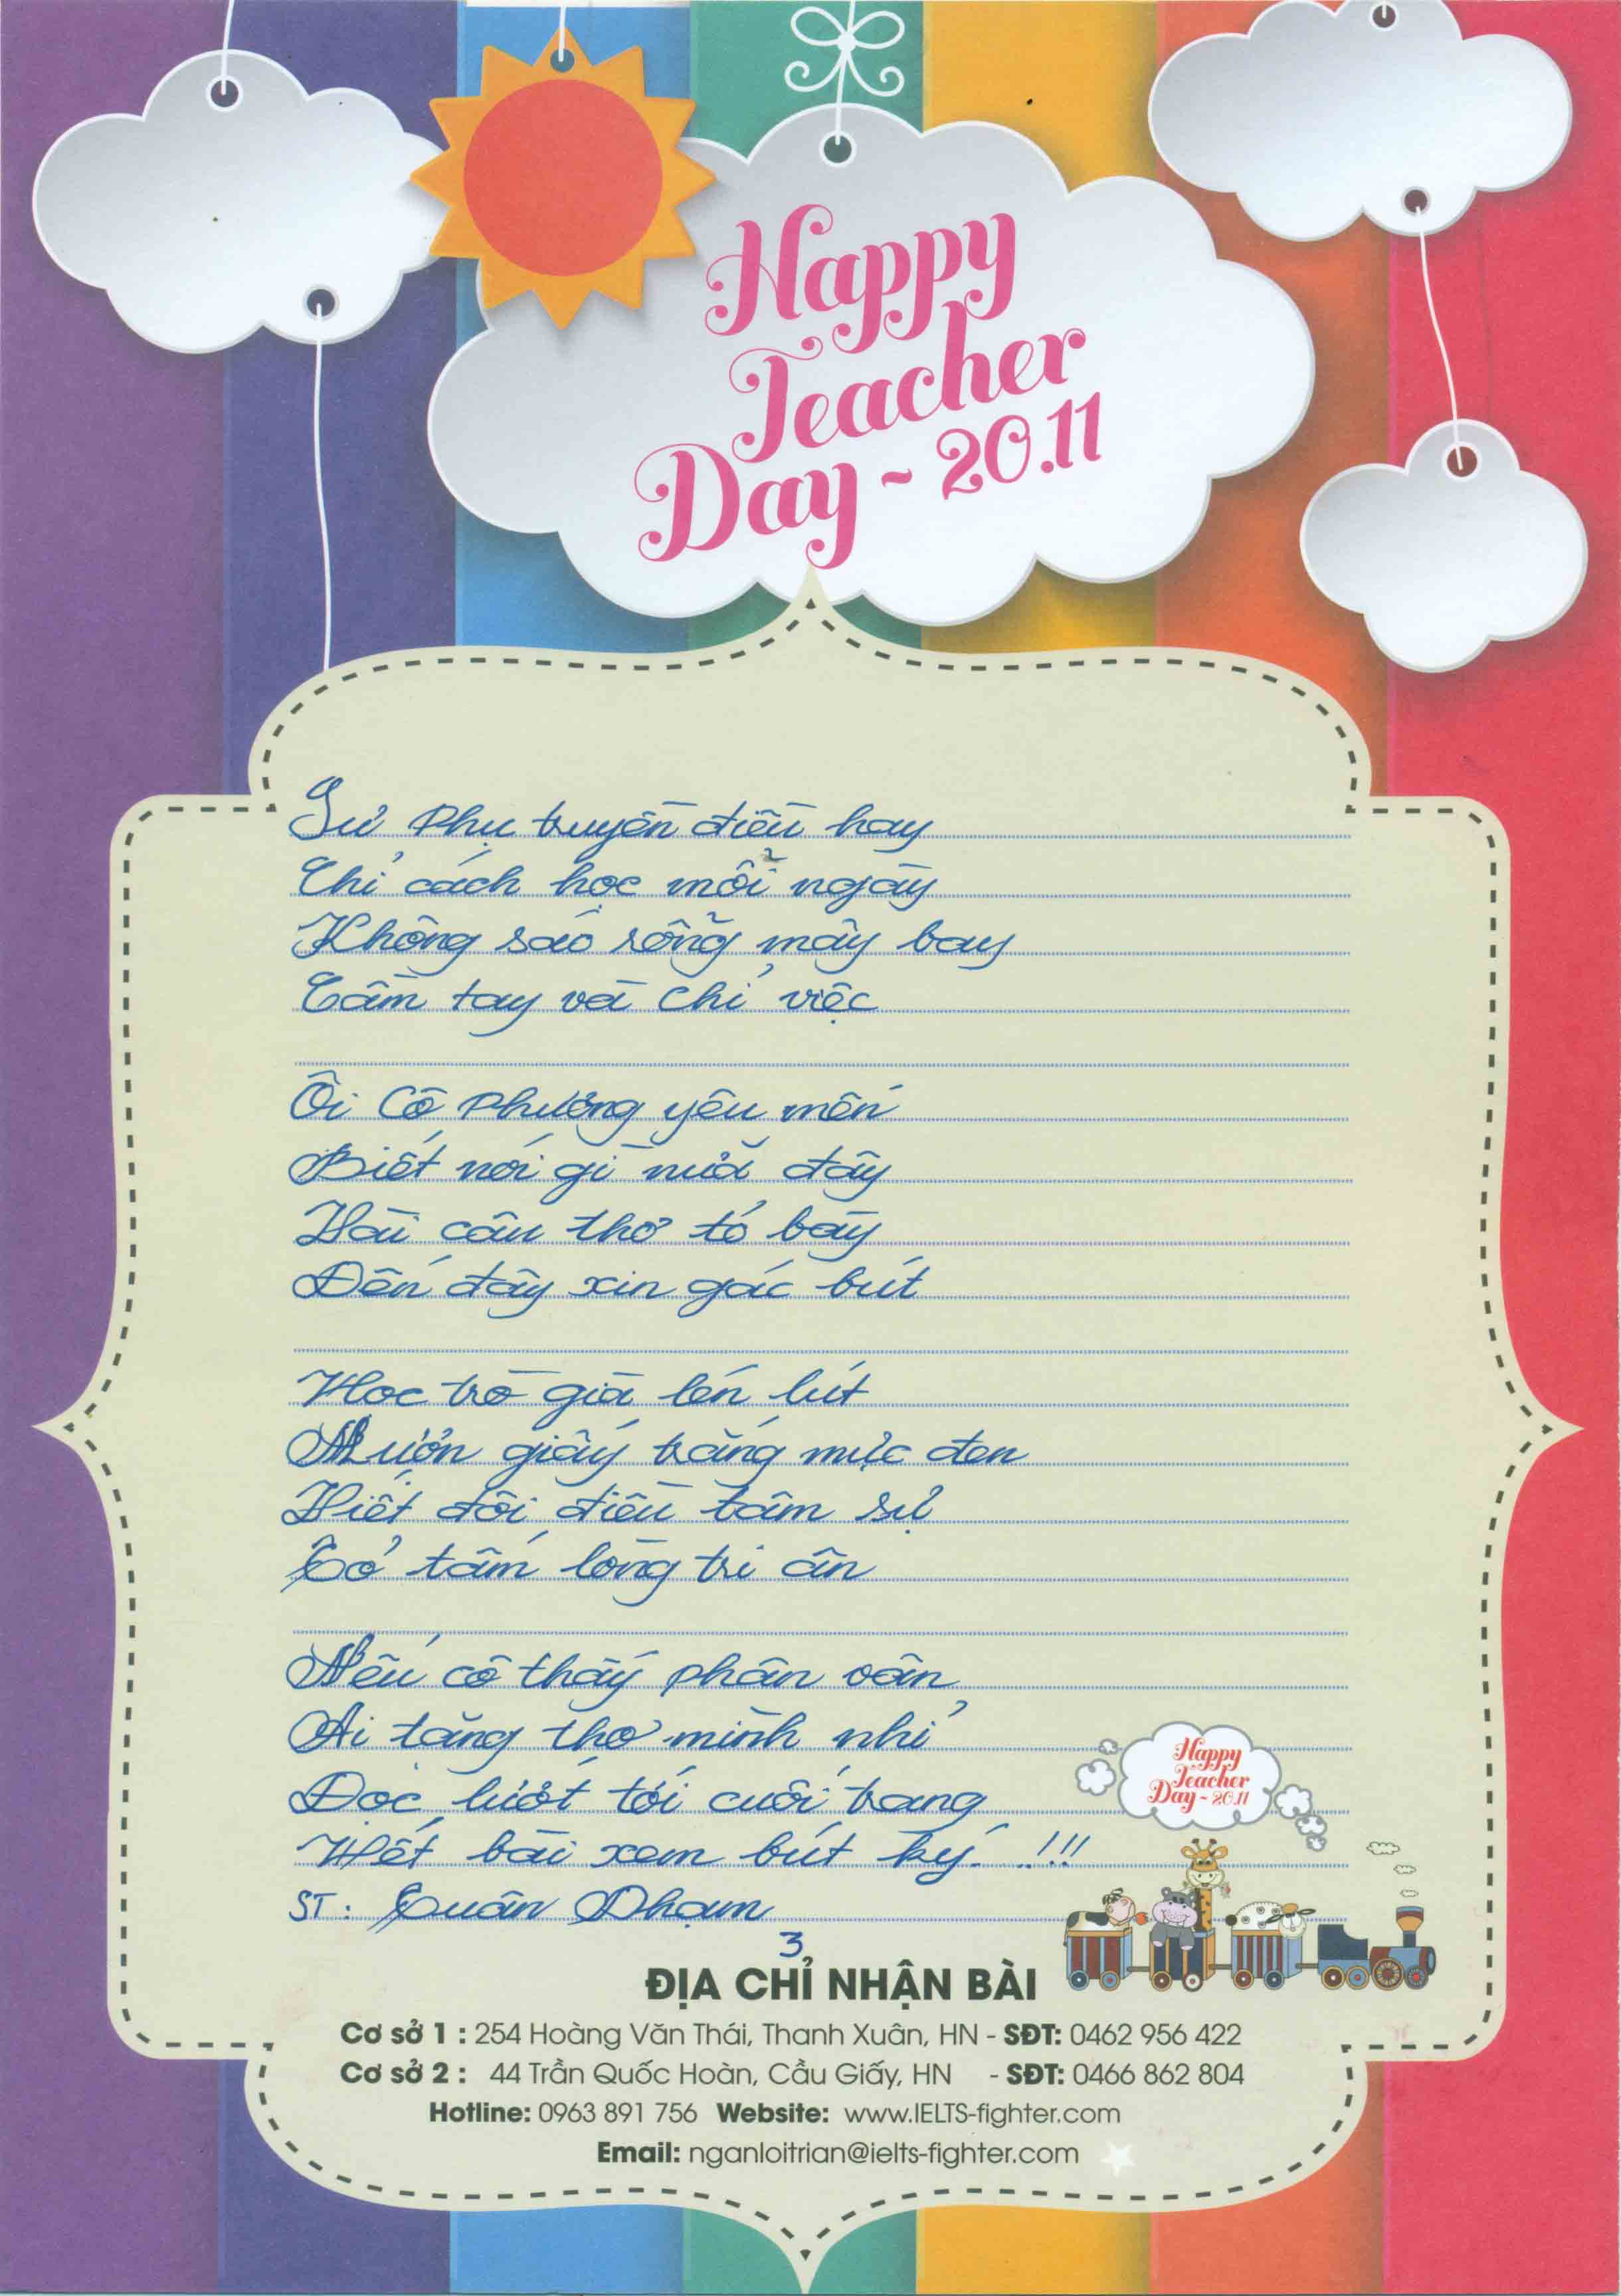 Happy
Teacher
Day - 20.11
Sư Phụ truyền điều hay
Chỉ cách học mỗi ngày
Không sáo rỗng mây bay
Cầm tay và chỉ việc
Ôi Cô Phương yêu mến
Biết nói gì nữa đây
Vài câu thơ tỏ bày
Đến đây xin gác bút
Học trò già lén lút
Mượn giấy trắng mực đen
Viết đôi điều tâm sự
Tỏ tấm lòng tri ân
Nếu cô thấy phân vân
Ai tặng thơ mình nhỉ
Đọc lướt tới cuối trang
Hết bài xem bút ký. !!!
ST: Xuân Phạm
3
Happy
Teacher
Day - 20.11
ĐỊA CHỈ NHẬN BÀI
Cơ sở 1 : 254 Hoàng Văn Thái, Thanh Xuân, HN - SĐT: 0462 956 422
Cơ sở 2 : 44 Trần Quốc Hoàn, Cầu Giấy, HN - SĐT: 0466 862 804
Hotline: 0963 891 756 Website: www.IELTS-fighter.com
Email: nganloitrian@ielts-fighter.com